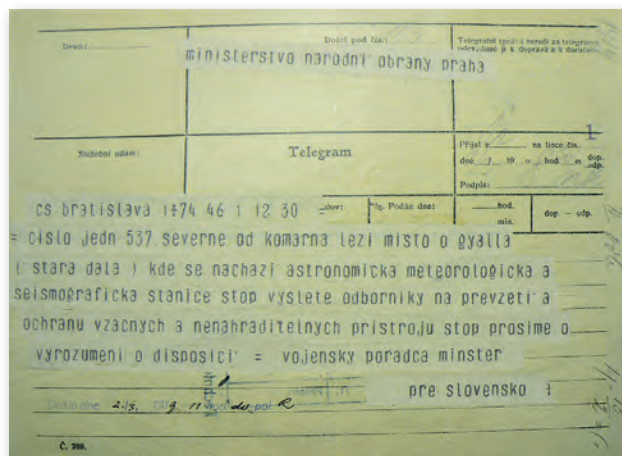 Druh:
Došel pod čís.:
ministerstvo narodni obrany praha
Služební údaj:
Telegram
Přijal z na lince čís.
dne 19 o hod. m dop. odp.
Podpis:
cs bratislava 1+74 46 1 12 30 = slov: Podán dne: hod. min. dop. — odp.
= cislo jedn 537 severne od komarna lezi misto o gyalla
( stara dala ) kde se nachazi astronomicka meteorologicka a
seismograficka stanice stop vyslete odborniky na prevzeti a
ochranu vzacnych a nenahraditelnych pristroju stop prosime o
vyrozumeni o disposici = vojensky poradca minster
pre slovensko +
Č. 769.